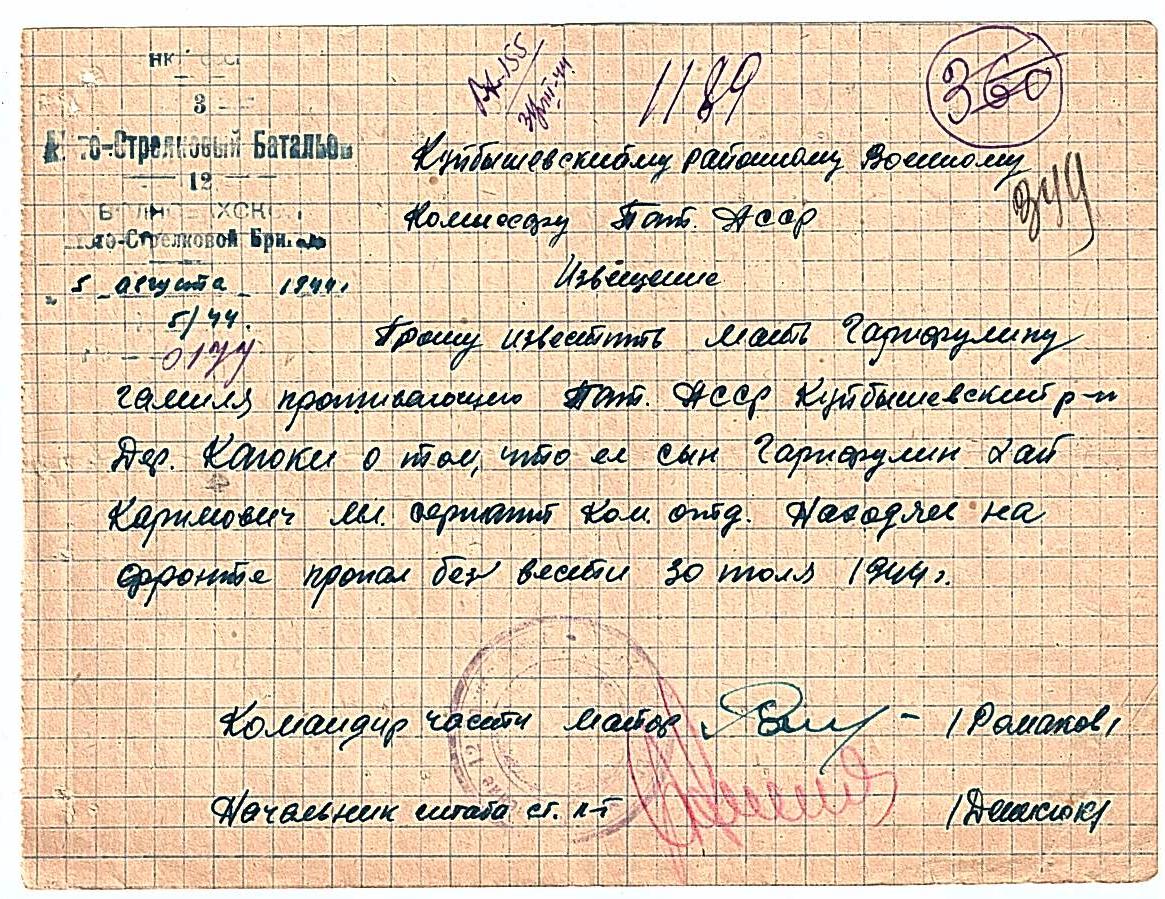 3
Мото-Стрелковый Батальон
12
Волновахской
Мото-Стрелковой Бригады
" 5 " августа 1944 г.
5/44.
0174
31/VIII-44
1189
360
349
Куйбышевскийму районному Военному
Комиссару Тат. АССР
Извещение
Прошу известить мать Гарифулину
Гамиля проживающию Тат. АССР Куйбышевский р-н
Дер. Каюки о том, что ее сын Гарифулин Хай
Каримович мл. сержант ком. отд. Находясь на
фронте пропал без вести 30 июля 1944 г.
Командир части майор — /Романов/
Начальник штаба ст. л-т /Денисюк/